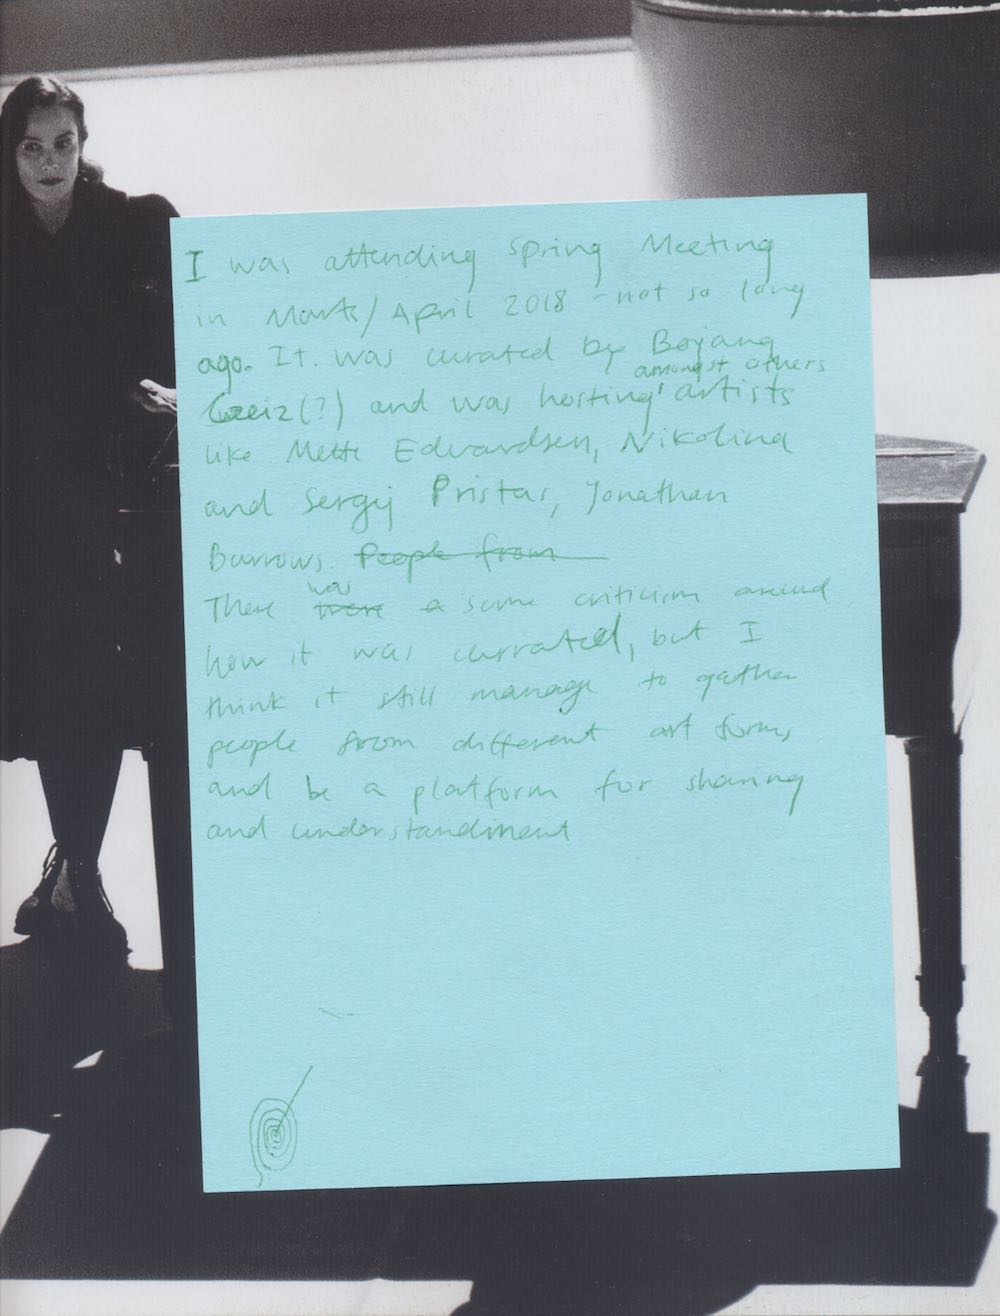 I was attending Spring Meeting
in Marts/April 2018 - not so long
ago. It was curated by Bojana
amongst others
(?) and was hosting artists
like Mette Edvardsen, Nikolina
and Sergij Pristas, Jonathan
Burrows. People from
was
There were a some criticism around
how it was currated, but I
think it still manage to gather
people from different art forms,
and be a platform for sharing
and understandiment